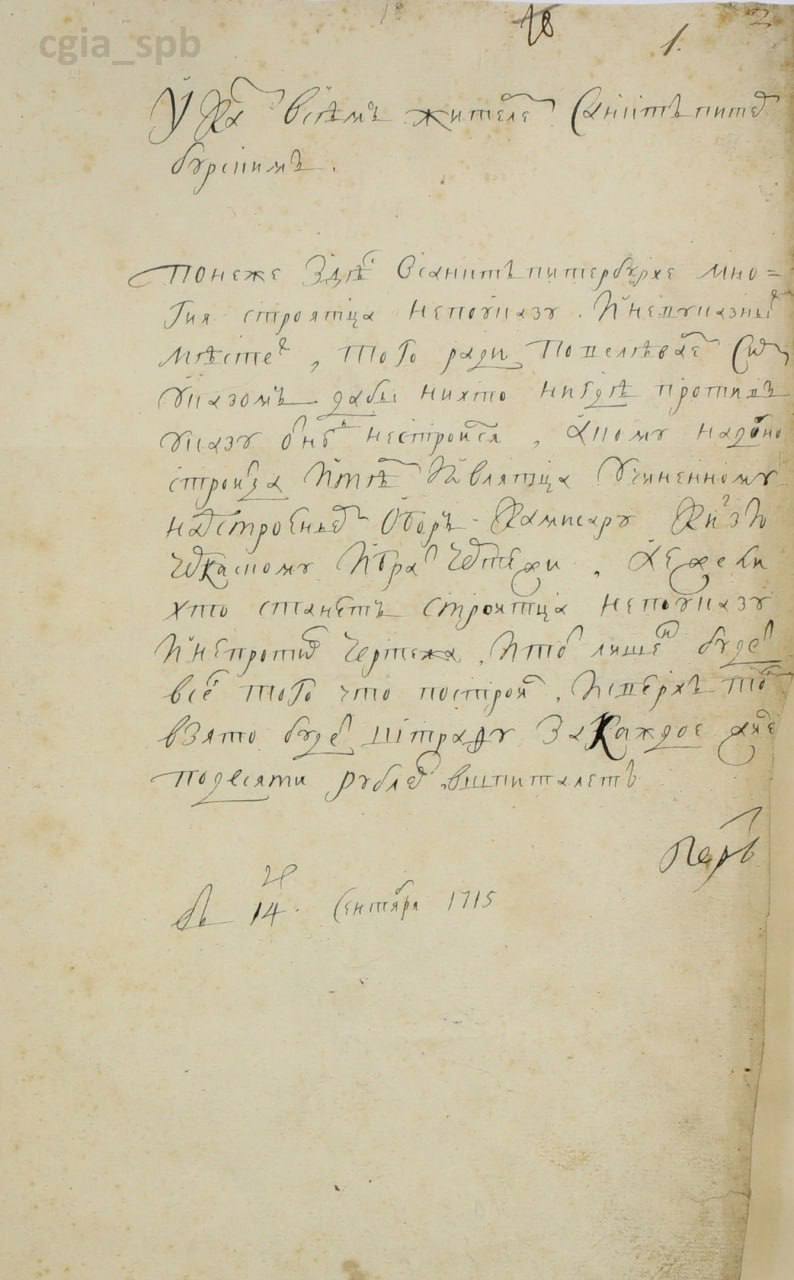 cgia_spb
18
1.
2
Указ всѣмъ жителем Санктъпитер
бурскимъ.
Понеже здѣс всанктъпитербурхе мно=
гия строятца непоуказу. И невуказных
мѣстех, того ради повелѣваем сим
указомъ дабы нихто нигдѣ противъ
указу онаго нестроился, а кому надобно
строица и тѣ б являтца учиненному
надстроением Оборъ-камисару князю
Черкаскому и брат чертежи, а ежели
хто станетъ строятца непоуказу
и непротив чертежа, и тот лишен будет
всего того что построил, и сверхъ того
взято будет штрафу за каждое
подесяти рублев, вшпиталетъ
Петръ
въ 14 Ч. Сентября 1715